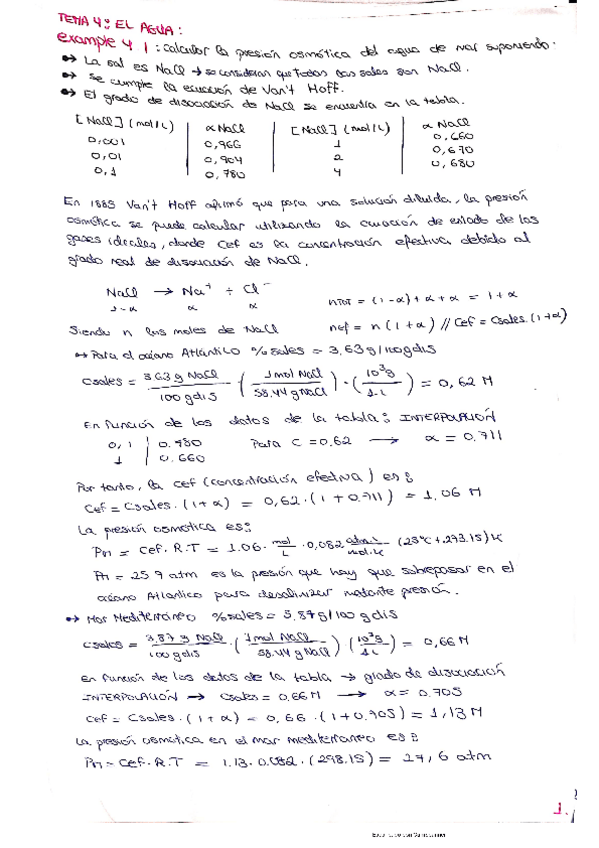 TEMA 4: EL AGUA:
example 4 1: calcular la presión osmótica del agua de mar suponiendo:
•→ La sal es NaCl → se consideran que todas las sales son NaCl.
•→ Se cumple la ecuación de Van't Hoff.
•→ El grado de disociación de NaCl se encuentra en la tabla.
[NaCl] (mol/L) | α NaCl | [NaCl] (mol/L) | α NaCl
0,001 | 0,966 | 1 | 0,660
0,01 | 0,904 | 2 | 0,670
0,1 | 0,780 | 4 | 0,680
En 1885 Van't Hoff afirmó que para una solución diluida, la presión
osmótica se puede calcular utilizando la ecuación de estado de los
gases ideales, donde Cef es la concentración efectiva debido al
grado real de disociación de NaCl.
NaCl → Na⁺ + Cl⁻
1-α α α nTOT = (1-α)+α+α = 1+α
Siendo n los moles de NaCl nef = n(1+α) // Cef = Csales.(1+α)
↔ Para el océano Atlántico % sales = 3,63 g/100gdis
Csales = 3.63 g NaCl / 100 gdis · (1 mol NaCl / 58.44 g NaCl) · (10³g / 1L) = 0,62 M
En función de los datos de la tabla: INTERPOLACIÓN
0,1 | 0.780 Para C = 0.62 → α = 0.711
1 | 0.660
Por tanto, la cef (concentración efectiva) es:
Cef = Csales.(1+α) = 0,62.(1+0.711) = 1.06 M
La presión osmótica es:
Pπ = Cef.R.T = 1.06. mol/L · 0,082 atm.L/mol.K (25ºC+273.15)K
Pπ = 25.9 atm es la presión que hay que sobrepasar en el
océano Atlántico para desalinizar mediante presión.
•→ Mar Mediterráneo % sales = 3.87 g/100 gdis
Csales = 3,87 g NaCl / 100 gdis · (1 mol NaCl / 58.44 g NaCl) (10³g / 1L) = 0,66 M
En función de los datos de la tabla → grado de disociación
INTERPOLACIÓN → Csales = 0.66 M → α = 0.705
Cef = Csales.(1+α) = 0,66.(1+0.705) = 1,13 M
La presión osmótica en el mar mediterráneo es:
Pπ = Cef.R.T = 1.13.0.082.(298.15) = 27,6 atm
1.